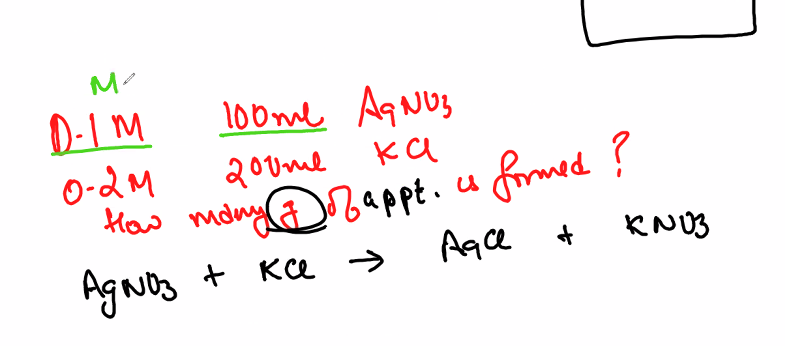 M
0.1 M 100ml AgNO3
0.2M 200ml KCl
How many g of a ppt. is formed ?
AgNO3 + KCl → AgCl + KNO3